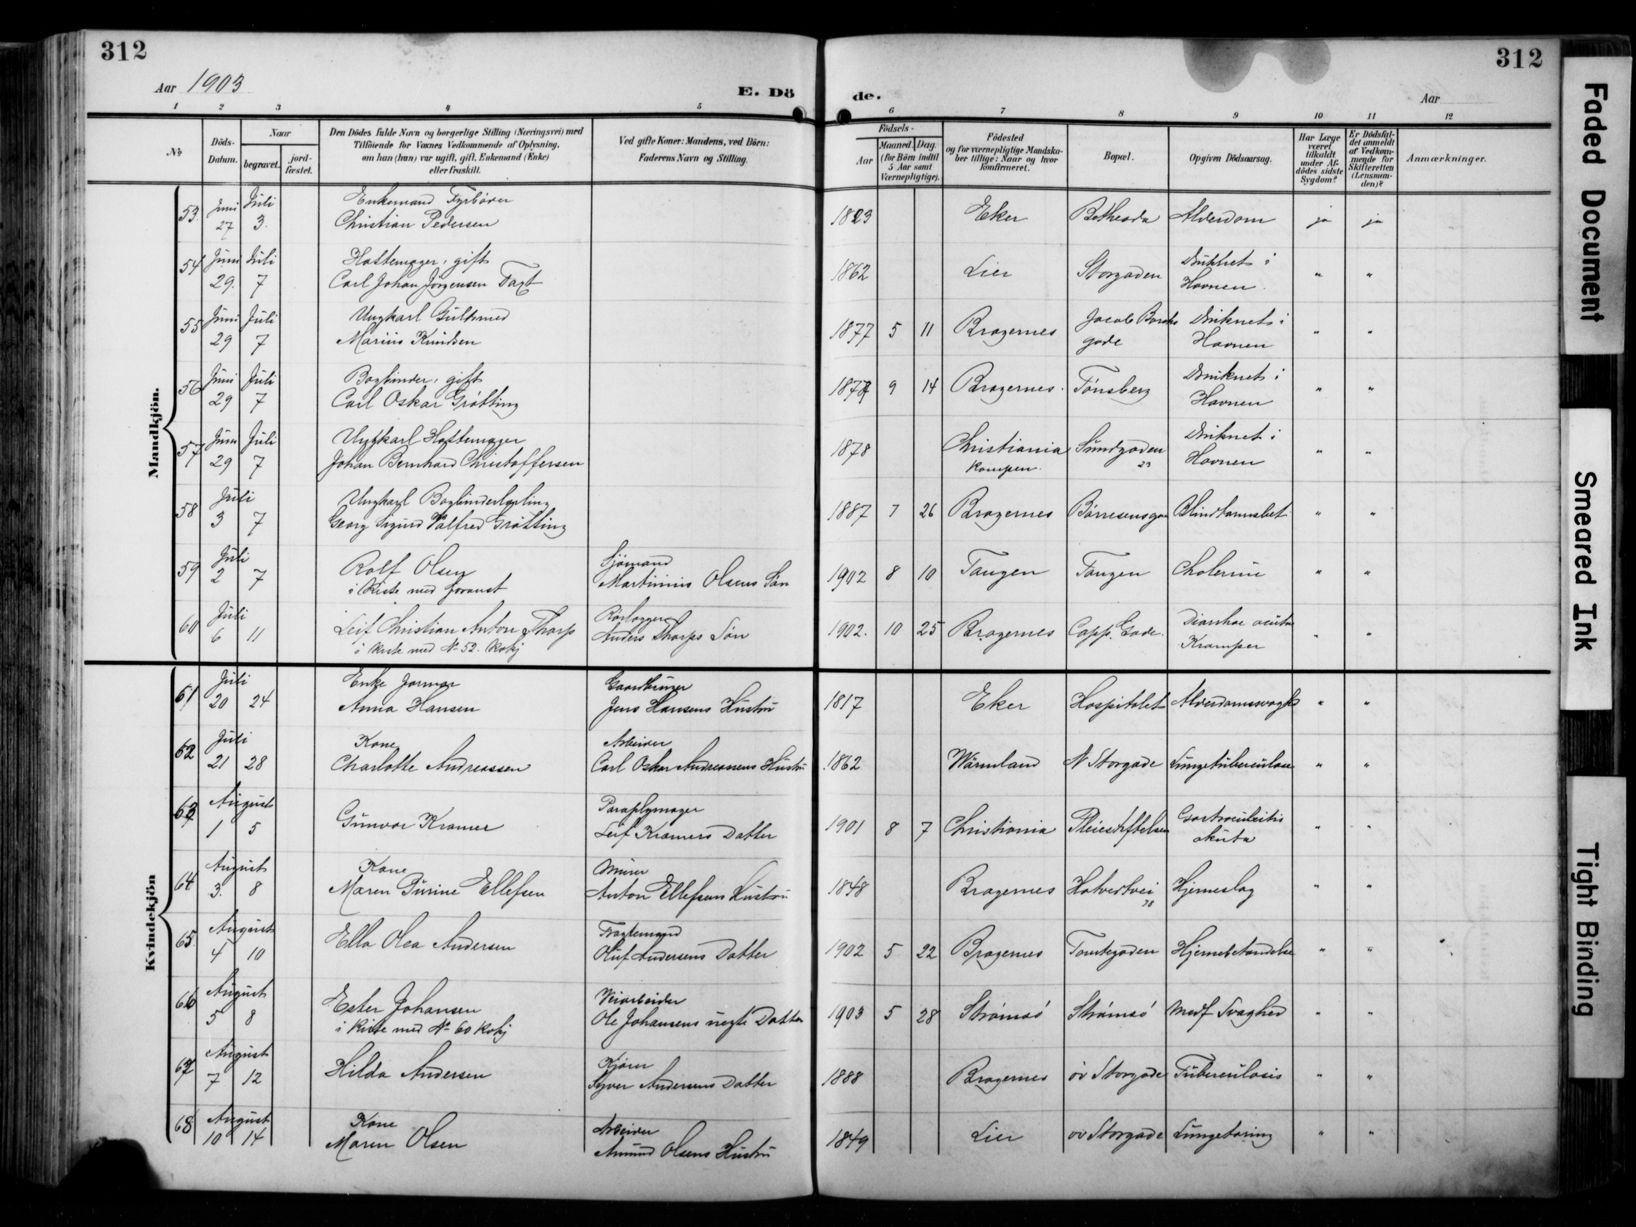 312
312
Aar 1903
E. Dö
de.
Aar
1 2 3 4 5 6 7 8 9 10 11 12
№
Döds-
Datum.
Naar
begravet.
jord-
fæstet.
Den Dödes fulde Navn og borgerlige Stilling (Næringsvei) med
Tilföiende for Voxnes Vedkommende af Oplysning,
om han (hun) var ugift, gift, Enkemand (Enke)
eller fraskilt.
Ved gifte Koner: Mandens, ved Börn:
Faderens Navn og Stilling.
Födsels-
Aar
Maaned.
Dag.
(for Börn indtil
5 Aar samt
Værnepligtige).
Födested
og for værnepligtige Mandska-
ber tillige: Naar og hvor
konfirmeret.
Bopæl.
Opgiven Dödsaarsag.
Har Læge
været
tilkaldt
under Af-
dödes sidste
Sygdom?
Er Dödsfal-
det anmeldt
af Vedkom-
mende for
Skifteretten
(Lensman-
den)?
Anmærkninger.
Mandkjön.
53. Juni Juli Enkemand
27 3. Christian Pedersen 1823 Eker Bethesda Alderdom ja ja
54 Juni Juli Hattemager, gift Druknet i
29. 7 Carl Johan Jørgensen 1862 Lier Storgaden Havnen. " "
55 Juni Juli Ungkarl Guldsmed Jacob Borchs Druknet i
29 7 Marius Knudsen 1877 5 11 Bragernes gade Havnen " "
56 Juni Juli Bogbinder, gift Druknet i
29 7 Carl Oskar Grøtting 9 14 Bragernes. Tønsberg Havnen " "
57 Juni Juli Ungkarl Hattemager Druknet i
29 7 Johan Bernhard Christoffersen 1878 Christiania Sundgaden Havnen " "
Kampen. 23
58 Juli Ungkarl Bogbinderlærling
3 7 Georg Sigurd Valfred Grøtting 1887 7 26 Bragernes " "
59 Juli Rolf Olsen Sjømand
2 7 i Kiste med Martinius Olsens Søn 1902 8 10 Tangen Tangen Cholerine " "
60 Juli Leif Christian Anton Thorp Rørlægger Diarrhoe acuta
6 11 i kiste med № 52. Anders Thorps Søn 1902. 10 25 Bragernes Capp. Gade. Kramper " "
Kvindekjön
61 Juli Enke Gaardbruger
20 24 Anna Hansen Jens Hansens Hustru 1817 Eker Hospitalet " "
62 Juli Kone Arbeider
21 28 Charlotte Andreassen Carl Oskar Andreassens Hustru 1862 Wärmland N Storgade Lungetuberculose " "
63 August Gunvor Kramer Paraplymager
1 5 Leif Kramers Datter 1901 8 7 Christiania Pleiestiftelsen akuta " "
64 August Kone Murer
3. 8 Maren Purine Ellefsen Anton Ellefsens Hustru 1848 Bragernes Hjerneslag " "
38
65. August Ella Olea Andersen
4 10 Oluf Andersens Datter 1902 5 22 Bragernes Tomtegaden Hjernebetændelse " "
66 August Ester Johansen Veiarbeider
5 8 i Kiste med № 60 Ole Johansens uegte Datter 1903 5 28 Strømsø Strømsø Medf Svaghed " "
67 August Hilda Andersen Kjører
7 12 Syver Andersens Datter 1888 Bragernes øv Storgade Tuberculosis " "
68 August Kone Arbeider
10 14 Maren Olsen Amund Olsens Hustru 1849 Lier øv Storgade Lungetæring " "
Faded Document
Smeared Ink
Tight Binding